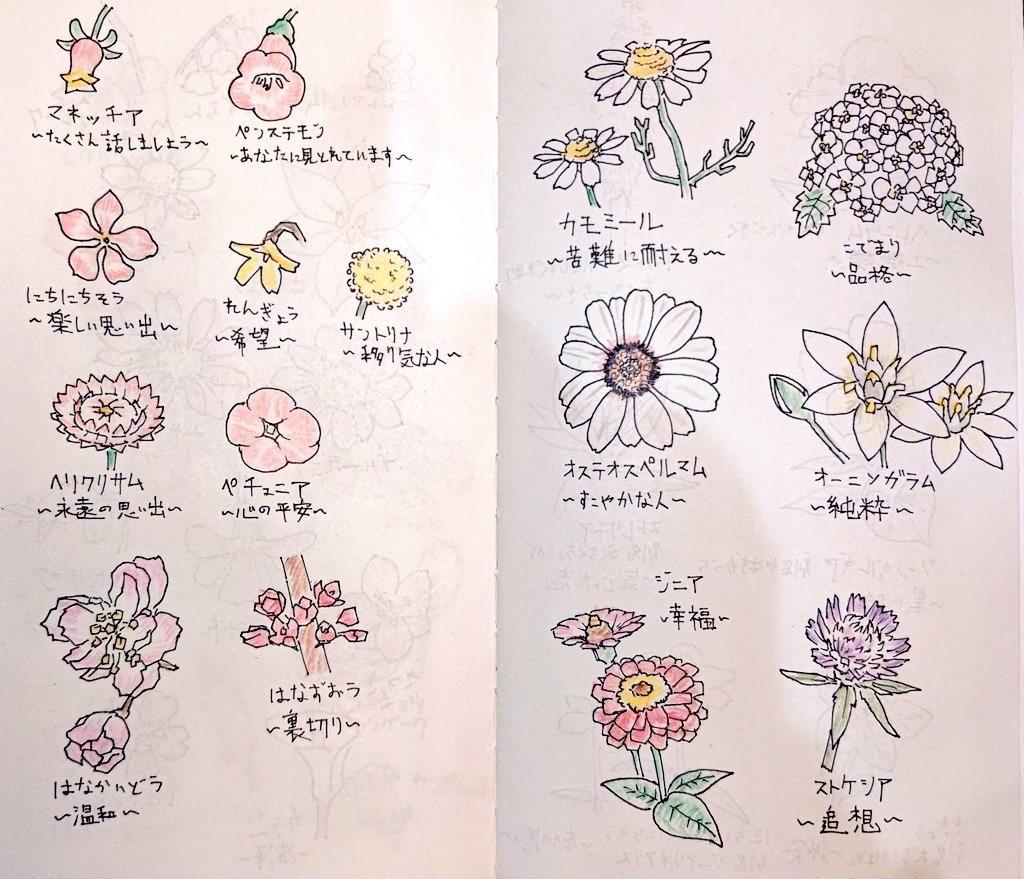 マネッチア
~たくさん話しましょう~
ペンステモン
~あなたに見とれています~
にちにちそう
~楽しい思い出~
れんぎょう
~希望~
サントリナ
~移り気な人~
ヘリクリサム
~永遠の思い出~
ペチュニア
~心の平安~
はなかいどう
~温和~
はなずおう
~裏切り~
カモミール
~苦難に耐える~
こでまり
~品格~
オステオスペルマム
~すこやかな人~
オーニソガラム
~純粋~
ジニア
~幸福~
ストケシア
~追想~